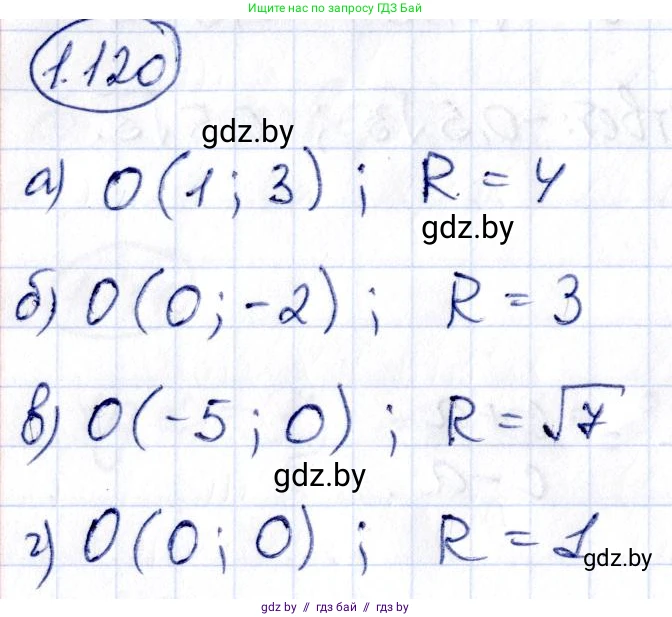 Ищите нас в поиске по запросу ГДЗ Бай
1.120
gdz.by
а) O(1; 3); R = 4
gdz.by
б) O(0; -2); R = 3
в) O(-5; 0); R = √7
gdz.by
г) O(0; 0); R = 1
gdz.by
gdz.by // гдз бай // гдз by